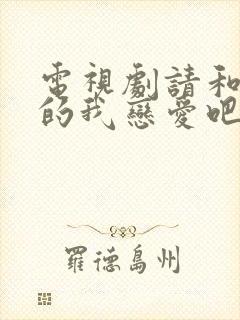 電視劇請和
的我戀愛吧
羅德島州